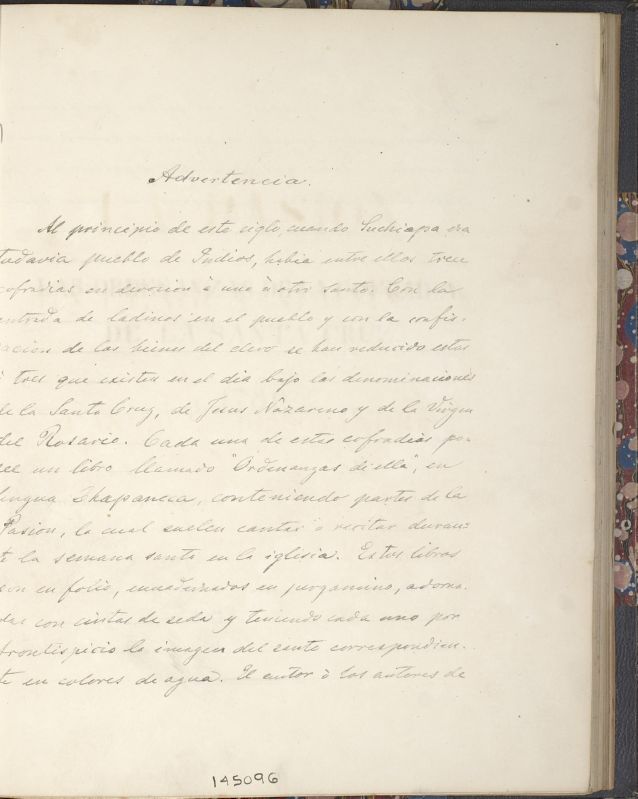 Advertencia.
Al principio de este siglo, cuando Suchiapa era
todavia pueblo de Indios, habia entre ellos trece
cofradias en devocion à uno ù otro santo. Con la
entrada de ladinos en el pueblo y con la confis-
cacion de los bienes del clero se han reducido estas
à tres que existen en el dia bajo las denominaciones
de la Santa Cruz, de Jesus Nazareno y de la Virgen
del Rosario. Cada una de estas cofradias po-
see un libro llamado "Ordenanzas de ella", en
lengua Chapaneca, conteniendo partes de la
Pasion, la cual suelen cantar o recitar duran-
te la semana santa en la iglesia. Estos libros
son en folio, encuadernados en pergamino, adorna-
das con cintas de seda y teniendo cada uno por
frontispicio la imagen del santo correspondien-
te en colores de agua. El autor ò los autores de
145096